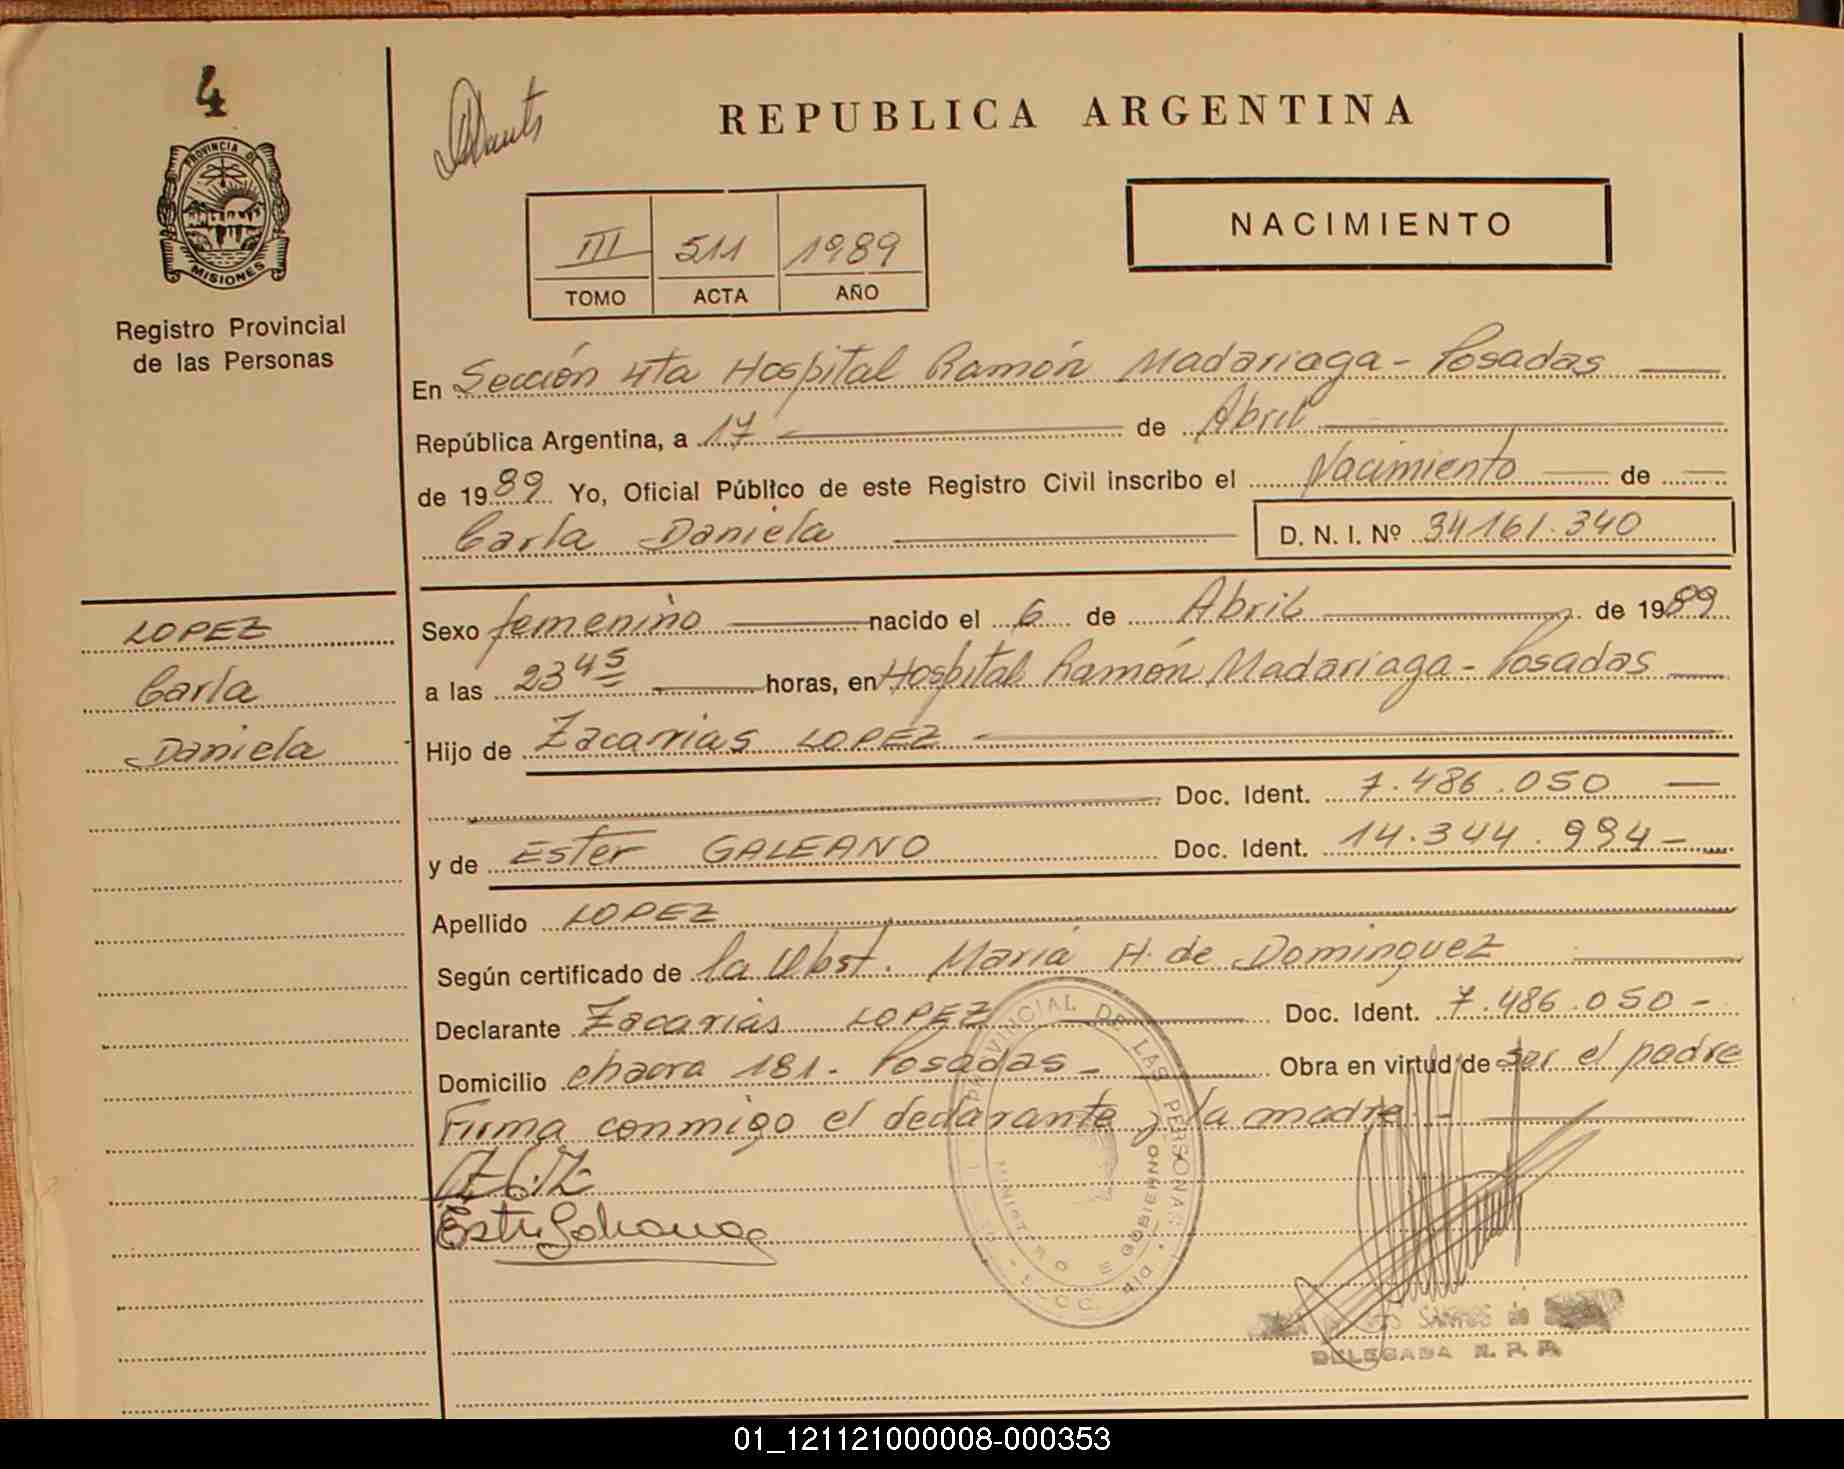 4
PROVINCIA DE
MISIONES
Registro Provincial
de las Personas
REPUBLICA ARGENTINA
NACIMIENTO
III 511 1989
TOMO ACTA AÑO
En Sección 4ta Hospital Ramón Madariaga - Posadas
República Argentina, a 17 de Abril
de 1989 Yo, Oficial Público de este Registro Civil inscribo el Nacimiento de
Carla Daniela D. N. I. Nº 34161.340
LOPEZ
Carla
Daniela
Sexo femenino nacido el 6 de Abril de 1989
a las 23 45 horas, en Hospital Ramón Madariaga - Posadas
Hijo de Zacarias LOPEZ
Doc. Ident. 7.486.050
y de Ester GALEANO Doc. Ident. 14.344.994-
Apellido LOPEZ
Según certificado de la Obst. Maria H. de Dominguez
Declarante Zacarias LOPEZ Doc. Ident. 7.486.050-
Domicilio chacra 181. Posadas - Obra en virtud de ser el padre
Firma conmigo el declarante y la madre.-
PROVINCIAL DE LAS PERSONAS
MINISTERIO DE GOBIERNO
SANTOS de
DELEGADA R. P. P.
01_121121000008-000353